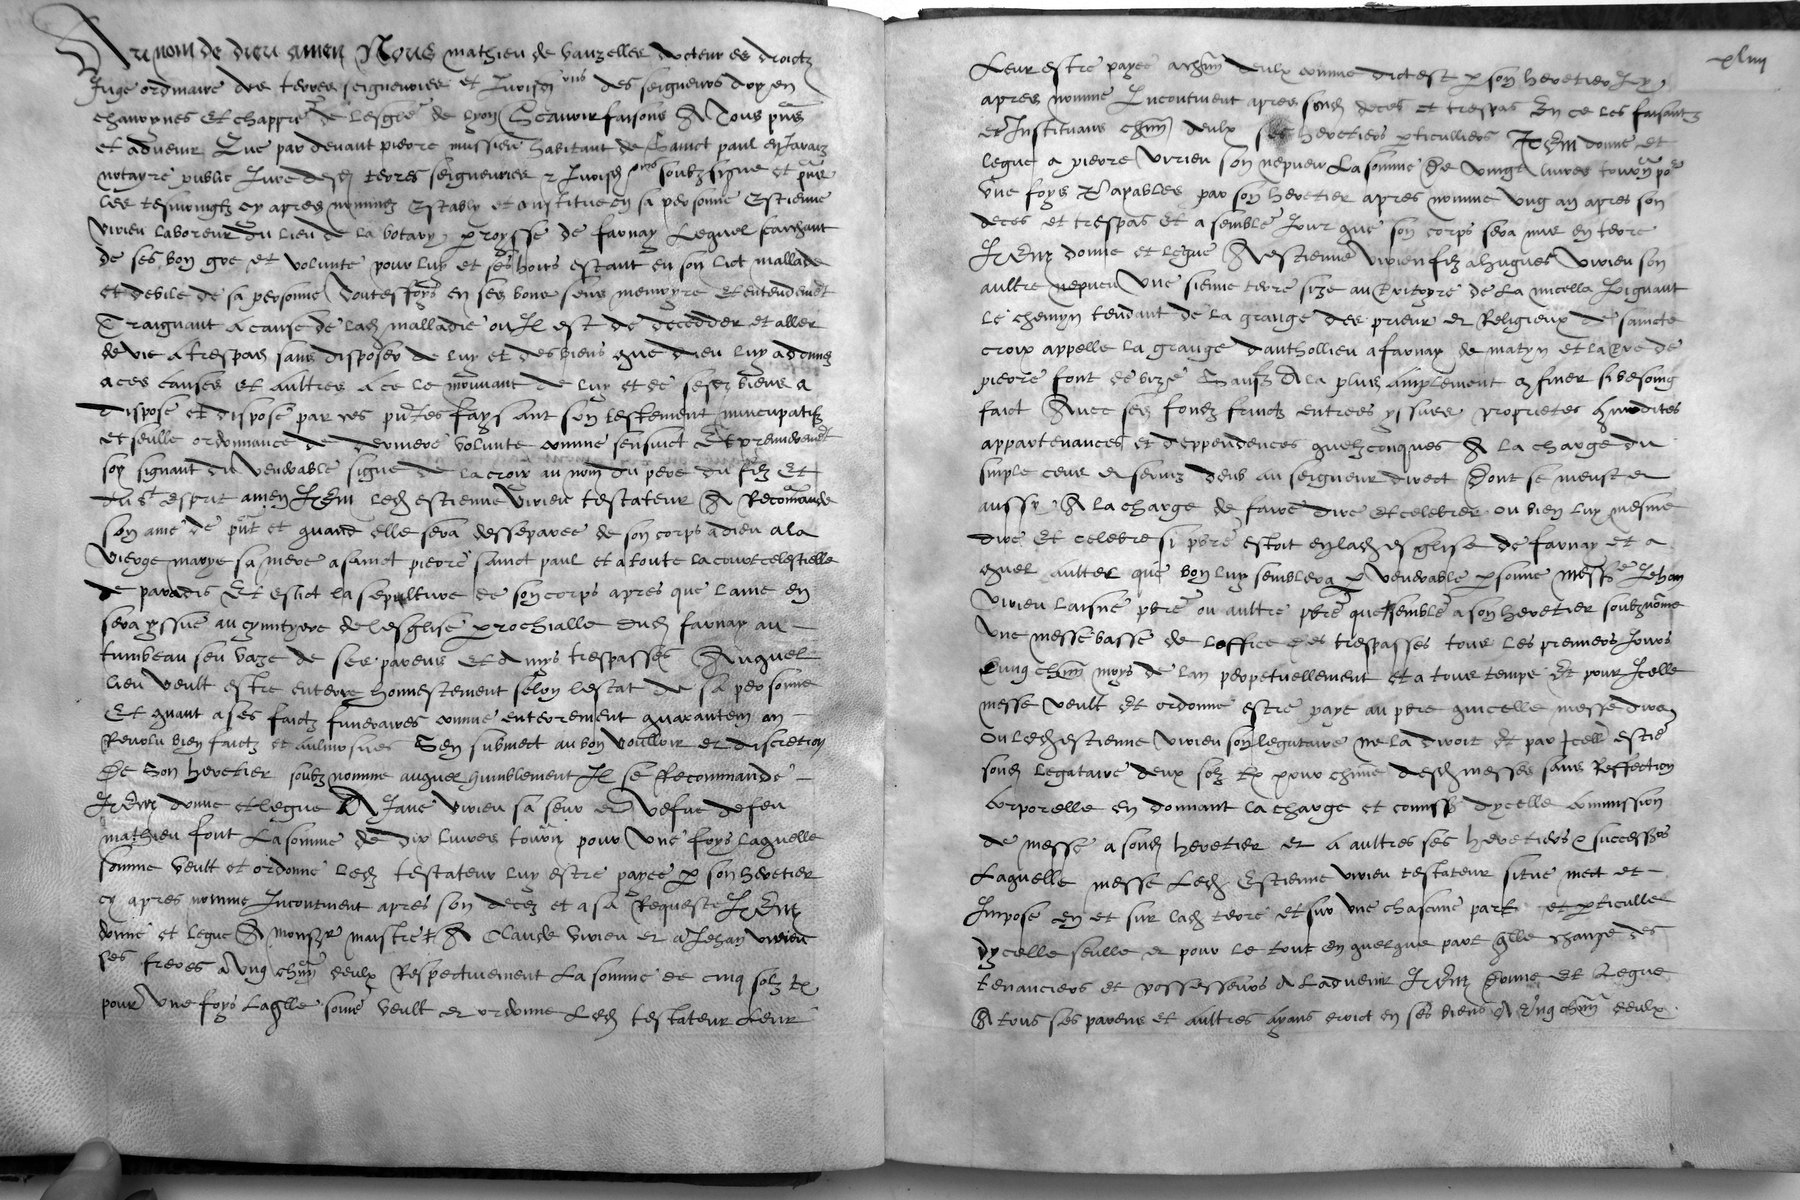 Au nom de dieu amen Nous mathieu de vauzelles docteur es droictz
Juge ordinaire des terres seigneuries et Jurisdons des seigneurs doyen
chanoynes Et chappre de lesglé de lyon Scavoir faisons A Tous pñs
et advenir Que par devant pierre mussieu habitant de Sainct paul en Jararz
notayre public Jure desd terres seigneuries & Jurisdons soubz signe et pñs
les tesmoingtz cy apres nommez Estably et constitue en sa personne Estienne
virieu laboreur du lieu de la botary proysse de farnay Lequel scaichant
de ses bon gre et volunte pour luy et ses hoirs estant en son lict mallade
et debile de sa personne toutesffoys en ses bons sens memoyre Et entendemt
Craignant a cause de lad malladie ou Il est de decedder et aller
de vie a trespas sans disposer de luy et des biens que dieu luy a donnez
a ces causes et aultres a ce le mouvant de luy et de sesd biens a
dispose et dispose par ces pñtes faysant son testement nuncupatifz
et seulle ordonnance de derniere volunte comme sensuict Et premieremt
soy signant du venerable signe de la croix au nom du pere du filz Et
du st esprit amen Item led estienne virieu testateur A Recomande
son ame de pñt et quant elle sera desseparee de son corps a dieu a la
vierge marye sa mere a sainct pierre sainct paul et a toute la court celestielle
de paradis Et eslict la sepulture de son corps apres que lame en
sera yssue au cymityere de lesglise prochialle dud farnay au
tumbeau seu vaze de ses parens et amys trespasses Auquel
lieu veult estre enterre honnestement selon lestat de sa personne
Et quant a ses faictz funeraires comme enterrement quarantem an
Revolu bien faictz et aulmosnes Sen submect au bon voulloir et discretion
De Son heretier soubz nomme auquel humblement Il se Recommande
Item donne et legue A Jane virieu sa seur et vefve de feu
mathieu font La somme de dix livres tourn pour une foys laquelle
somme veult et ordonne led testateur luy estre payee p son heretier
cy apres nomme Incontinent apres son decez et a sa Requeste Item
donne et legue A monsr maistre A Claude virieu et a Jehan virieu
ses freres a ung chun deulx Respectivement La somme de cinq solz tz
pour une foys Laqlle some veult et ordonne Led testateur Leur
xliiii
Leur estre payee a chun deulx comme dict est p son heretier Icy
apres nomme Incontinent apres sond deces et trespas En ce les faisantz
et Instituans chun deulx ses heretiers pticulliers Item donne et
legue a pierre virieu son nepveu La somme De vingt livres tourn po
une foys Payables par son heretier apres nomme ung an apres son
deces et trespas et a semble Jour que son corps sera mis en terre
Item donne et legue A estienne virieu filz a hugues virieu son
aultre nepveu Une sienne terre size au territoyre de La micella Joignant
le chemyn tendant de la grange des prieur et Religieux de saincte
croix appelle la grange danthollieu a farnay de matyn et la tre de
pierre font de bize Saufz A la plus amplement confiner si besoing
faict Avec ses fondz fruictz entrees yssues proprietes comodites
appartenances et deppendences quelzconques A la charge du
simple cens et servis deus au seigneur direct Dont se meust et
aussy A la charge de faire dire et celebrer ou bien luy mesme
dire Et celebre si pbre estoit en lad esglise de farnay et a
quel aulter que bon luy semblera p venerable psonne messe Jehan
virieu laisne pbre ou aultre pbre que semble a son heretier soubznome
Une messe basse de loffice des trespasses tous les premiers Jours
dung chun moys de lan perpetuellement et a tous temps Et pour Icelle
messe veult Et ordonne estre paye au pbre quicelle messe dira
Ou led estienne virieu son legataire ne la diroit Et par Icell estie
sond legataire deux solz tz pour chune desd messes sans Reffection
corporelle en donnant la charge et comiss dycelle commission
de messe a sond heretier et a aultres ses heretiers & successrs
Laquelle messe Led Estienne virieu testateur situe mect et
Impose en et sur lad terre et sur une chascune part et pticulle
dycelle seulle et pour le tout en quelque part qlle change des
tenanciers et possesseurs A Ladvenir Item Donne et Legue
A tous ses parens et aultres ayans droict en ses biens A ung chun deulx